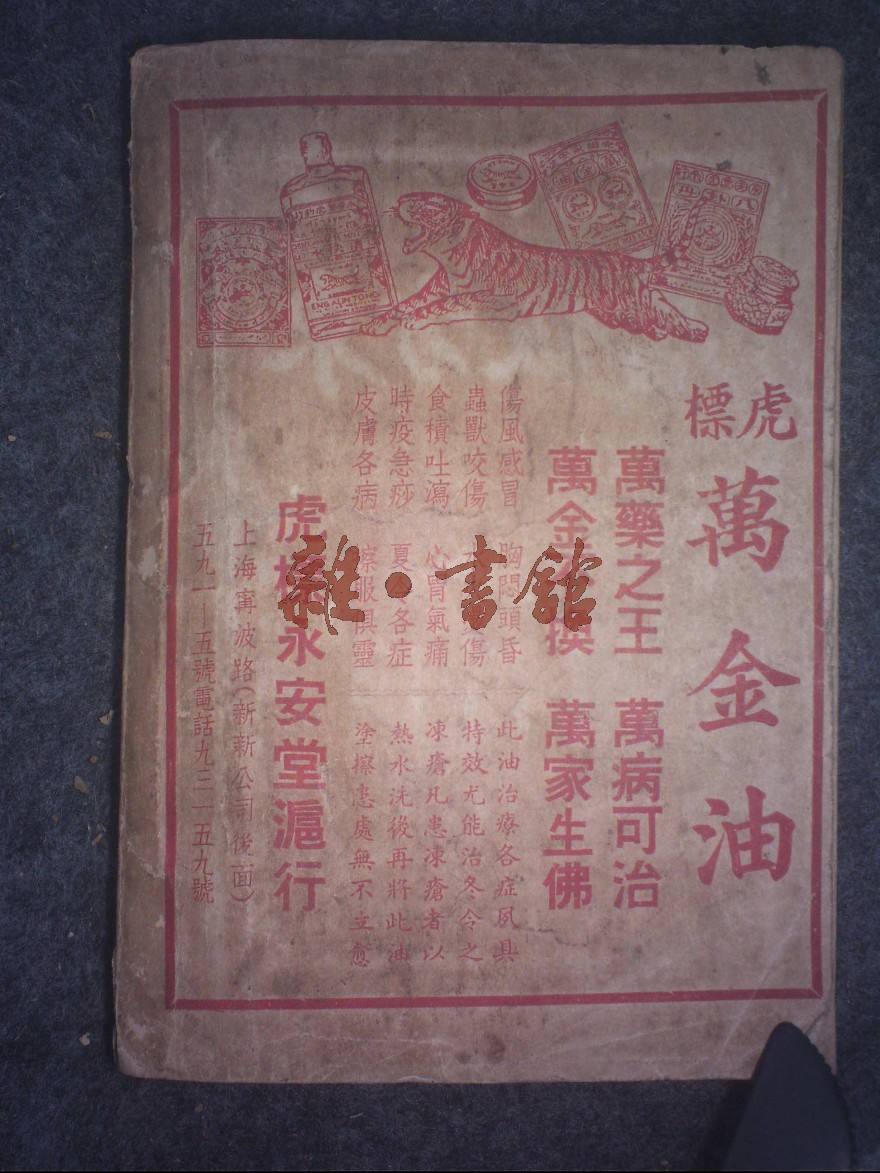 虎標
萬金油
萬藥之王 萬病可治
萬金 換 萬家生佛
傷風感冒 胸悶頭昏
蟲獸咬傷 傷
食積吐瀉 心胃氣痛
時疫急痧 夏 各症
皮膚各病 擦服俱靈
此油治療各症夙具
特效尤能治冬令之
凍瘡凡患凍瘡者以
熱水洗後再將此油
塗擦患處無不立愈
虎標永安堂滬行
上海寧波路(新新公司後面)
五九一—五號電話九三一五九號
ENG AUN TONG
雜·書館